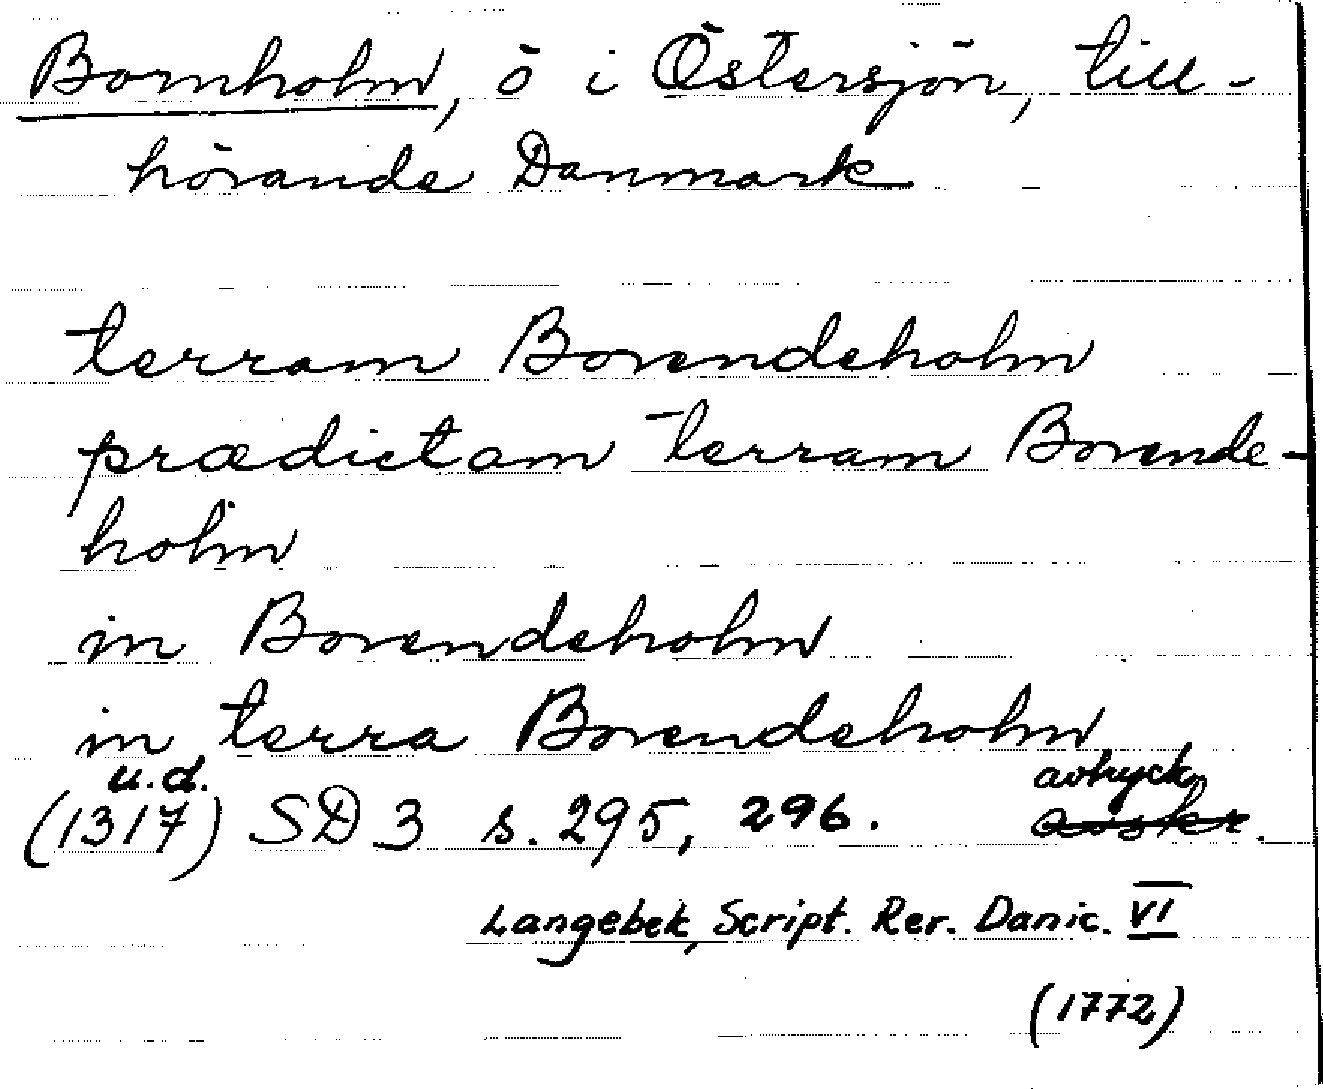 Bornholm, ö i Östersjön, till-
hörande Danmark
terram Borendeholm
prædictam terram Borende-
holm
in Borendeholm
in terra Borendeholm
u.d.
avtryck
(1317) SD 3 s. 295, 296. avskr.
Langebek, Script. Rer. Danic. VI
(1772)